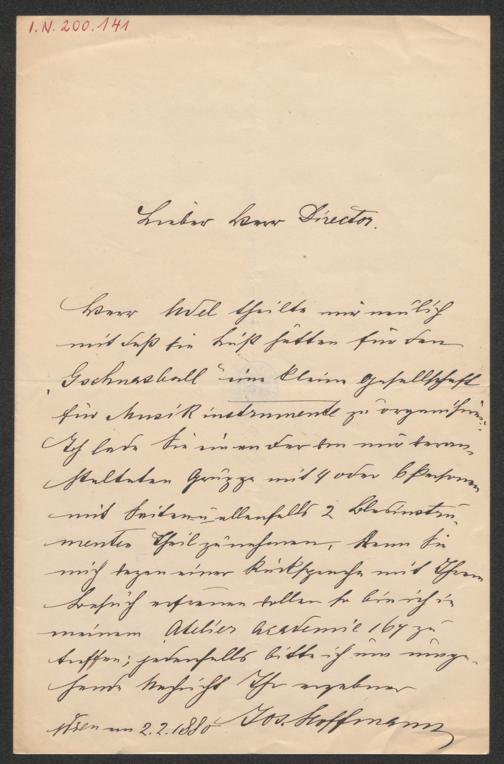 I.N. 200.141
Lieber Herr Director.
Herr Adel theilte mir neulich
mit daß Sie Lust hätten für den
"Gschnasball" eine kleine Gesellschaft
für Musikinstrumente zu organisiren.
Ich lade Sie ein an der von mir veran-
stalteten Gruppe mit 4 oder 6 Personen
mit Saiten u. allenfalls 2 Blasinstru-
menten Theil zu nehmen. Wenn Sie
mich wegen einer Rücksprache mit Ihrem
Besuch erfreuen wollen so bin ich in
meinem Atelier Academie 167 zu
treffen; jedenfalls bitte ich um umge-
hende Nachricht Ihr ergebener
Wien am 2.2.1880 Jos. Hoffmann